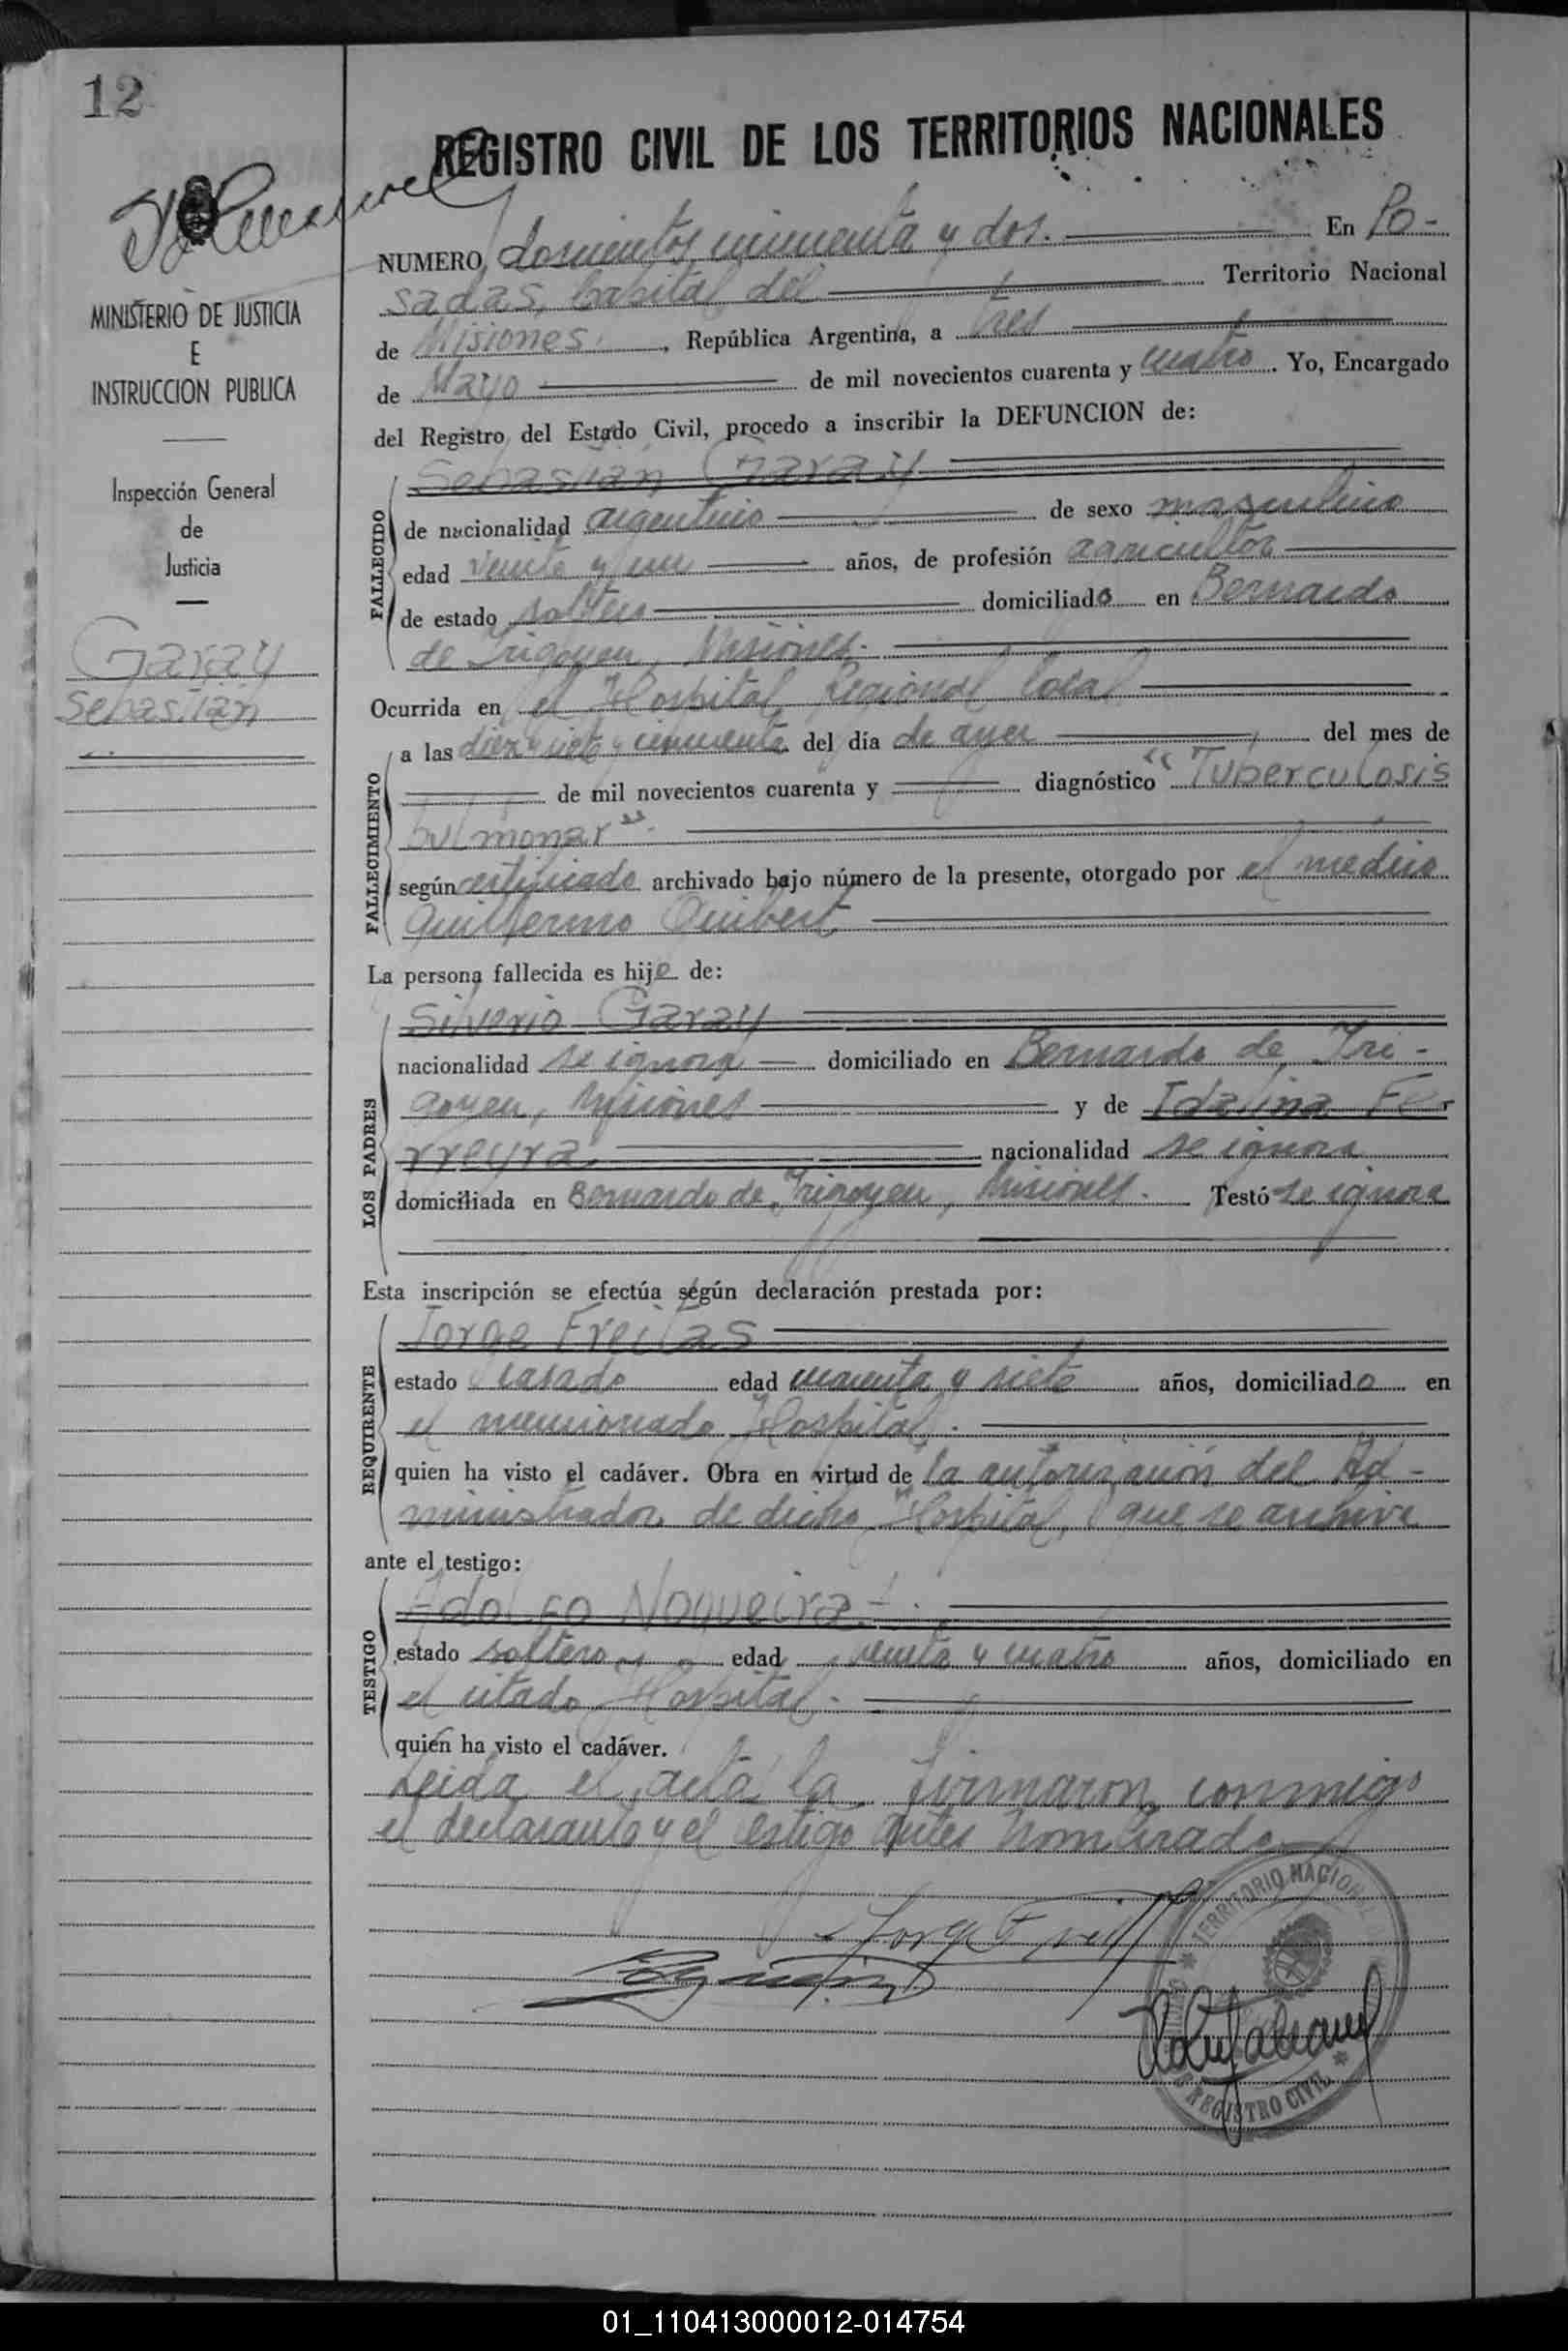 12
REGISTRO CIVIL DE LOS TERRITORIOS NACIONALES
MINISTERIO DE JUSTICIA
E
INSTRUCCION PUBLICA
Inspección General
de
Justicia
Garay
Sebastián
NUMERO doscientos cincuenta y dos. En Po-
sadas, Capital del Territorio Nacional
de Misiones, República Argentina, a tres
de Mayo de mil novecientos cuarenta y cuatro. Yo, Encargado
del Registro del Estado Civil, procedo a inscribir la DEFUNCION de:
FALLECIDO
Sebastián Garay
de nacionalidad argentino de sexo masculino
edad veinte y un años, de profesión agricultor
de estado soltero domiciliado en Bernardo
de Irigoyen, Misiones.
Ocurrida en el Hospital Regional local
FALLECIMIENTO
a las diez y siete y cincuenta del día de ayer del mes de
de mil novecientos cuarenta y diagnóstico "Tuberculosis
pulmonar".
según certificado archivado bajo número de la presente, otorgado por el médico
Guillermo
La persona fallecida es hijo de:
LOS PADRES
Silverio Garay
nacionalidad se ignora domiciliado en Bernardo de Iri-
goyen, Misiones y de Idalina Fer
rreyra nacionalidad se ignora
domiciliada en Bernardo de Irigoyen, Misiones. Testó se ignora
Esta inscripción se efectúa según declaración prestada por:
REQUIRENTE
Jorge Freitas
estado casado edad cuarenta y siete años, domiciliado en
el mencionado Hospital.
quien ha visto el cadáver. Obra en virtud de la autorización del Ad-
ministrador de dicho Hospital, que se archiva
ante el testigo:
TESTIGO
Adolfo Nogueira.
estado soltero edad veinte y cuatro años, domiciliado en
el citado Hospital.
quién ha visto el cadáver.
Leida el acta la firmaron conmigo
el declarante y el testigo antes nombrado
TERRITORIO NACIONAL
REGISTRO CIVIL
01_110413000012-014754